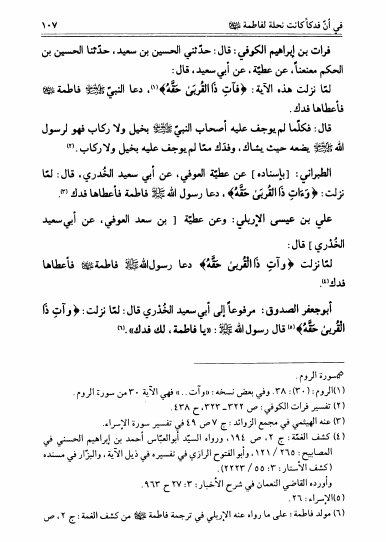 في أنّ فدكاً كانت نحلة لفاطمة ١٠٧
فرات بن إبراهيم الكوفي: قال: حدّثني الحسين بن سعيد، حدّثنا الحسين بن
الحكم معنعناً، عن عطيّة، عن أبي سعيد، قال:
لمّا نزلت هذه الآية: ﴿فَآتِ ذَا القُربَىٰ حَقَّهُ﴾(١)، دعا النبيّ ﷺ فاطمة
فأعطاها فدك.
قال: فكلّما لم يوجف عليه أصحاب النبيّ ﷺ بخيل ولا ركاب فهو لرسول
الله ﷺ يضعه حيث يشاء، وفدك ممّا لم يوجف عليه بخيل ولا ركاب.(٢)
الطبراني: [بإسناده] عن عطية العوفي، عن أبي سعيد الخدري، قال: لمّا
نزلت: ﴿وَءَاتِ ذَا القُربَىٰ حَقَّهُ﴾، دعا رسول الله ﷺ فاطمة فأعطاها فدك.(٣)
علي بن عيسى الإربلي: وعن عطيّة [ بن سعد العوفي، عن أبي سعيد
الخُدْري ] قال:
لمّا نزلت ﴿وَآتِ ذَا القُربىٰ حَقَّهُ﴾ دعا رسول الله ﷺ فاطمة فأعطاها
فدك.(٤)
أبو جعفر الصدوق: مرفوعاً إلى أبي سعيد الخُدْري قال: لمّا نزلت: ﴿وَآتِ ذَا
القُربىٰ حَقَّهُ﴾(٥) قال رسول الله ﷺ: «يا فاطمة، لك فدك».(٦)
سورة الروم.
(١) الروم: (٣٠): ٣٨. وفي بعض نسخه: «وآت..» فهي الآية ٣٠ من سورة الروم.
(٢) تفسير فرات الكوفي: ص ٣٢٢ـ ٣٢٣، ح ٤٣٨.
(٣) عنه الهيثمي في مجمع الزوائد: ج ٧ ص ٤٩ في تفسير سورة الإسراء.
(٤) كشف الغمّة: ج ٢، ص ١٩٤، ورواه السيّد أبو العبّاس أحمد بن إبراهيم الحسني في
المصابيح: ١٢١/٢٦٥، وأبو الفتوح الرازي في تفسيره في ذيل الآية، والبزّار في مسنده
(كشف الأستار: ٣: ٥٥ / ٢٢٢٣).
وأورده القاضي النعمان في شرح الأخبار: ٣: ٢٧ ح ٩٦٣.
(٥) الإسراء: ٢٦.
(٦) مولد فاطمة؛ على ما رواه عنه الإربلي في ترجمة فاطمة من كشف الغمة: ج ٢، ص